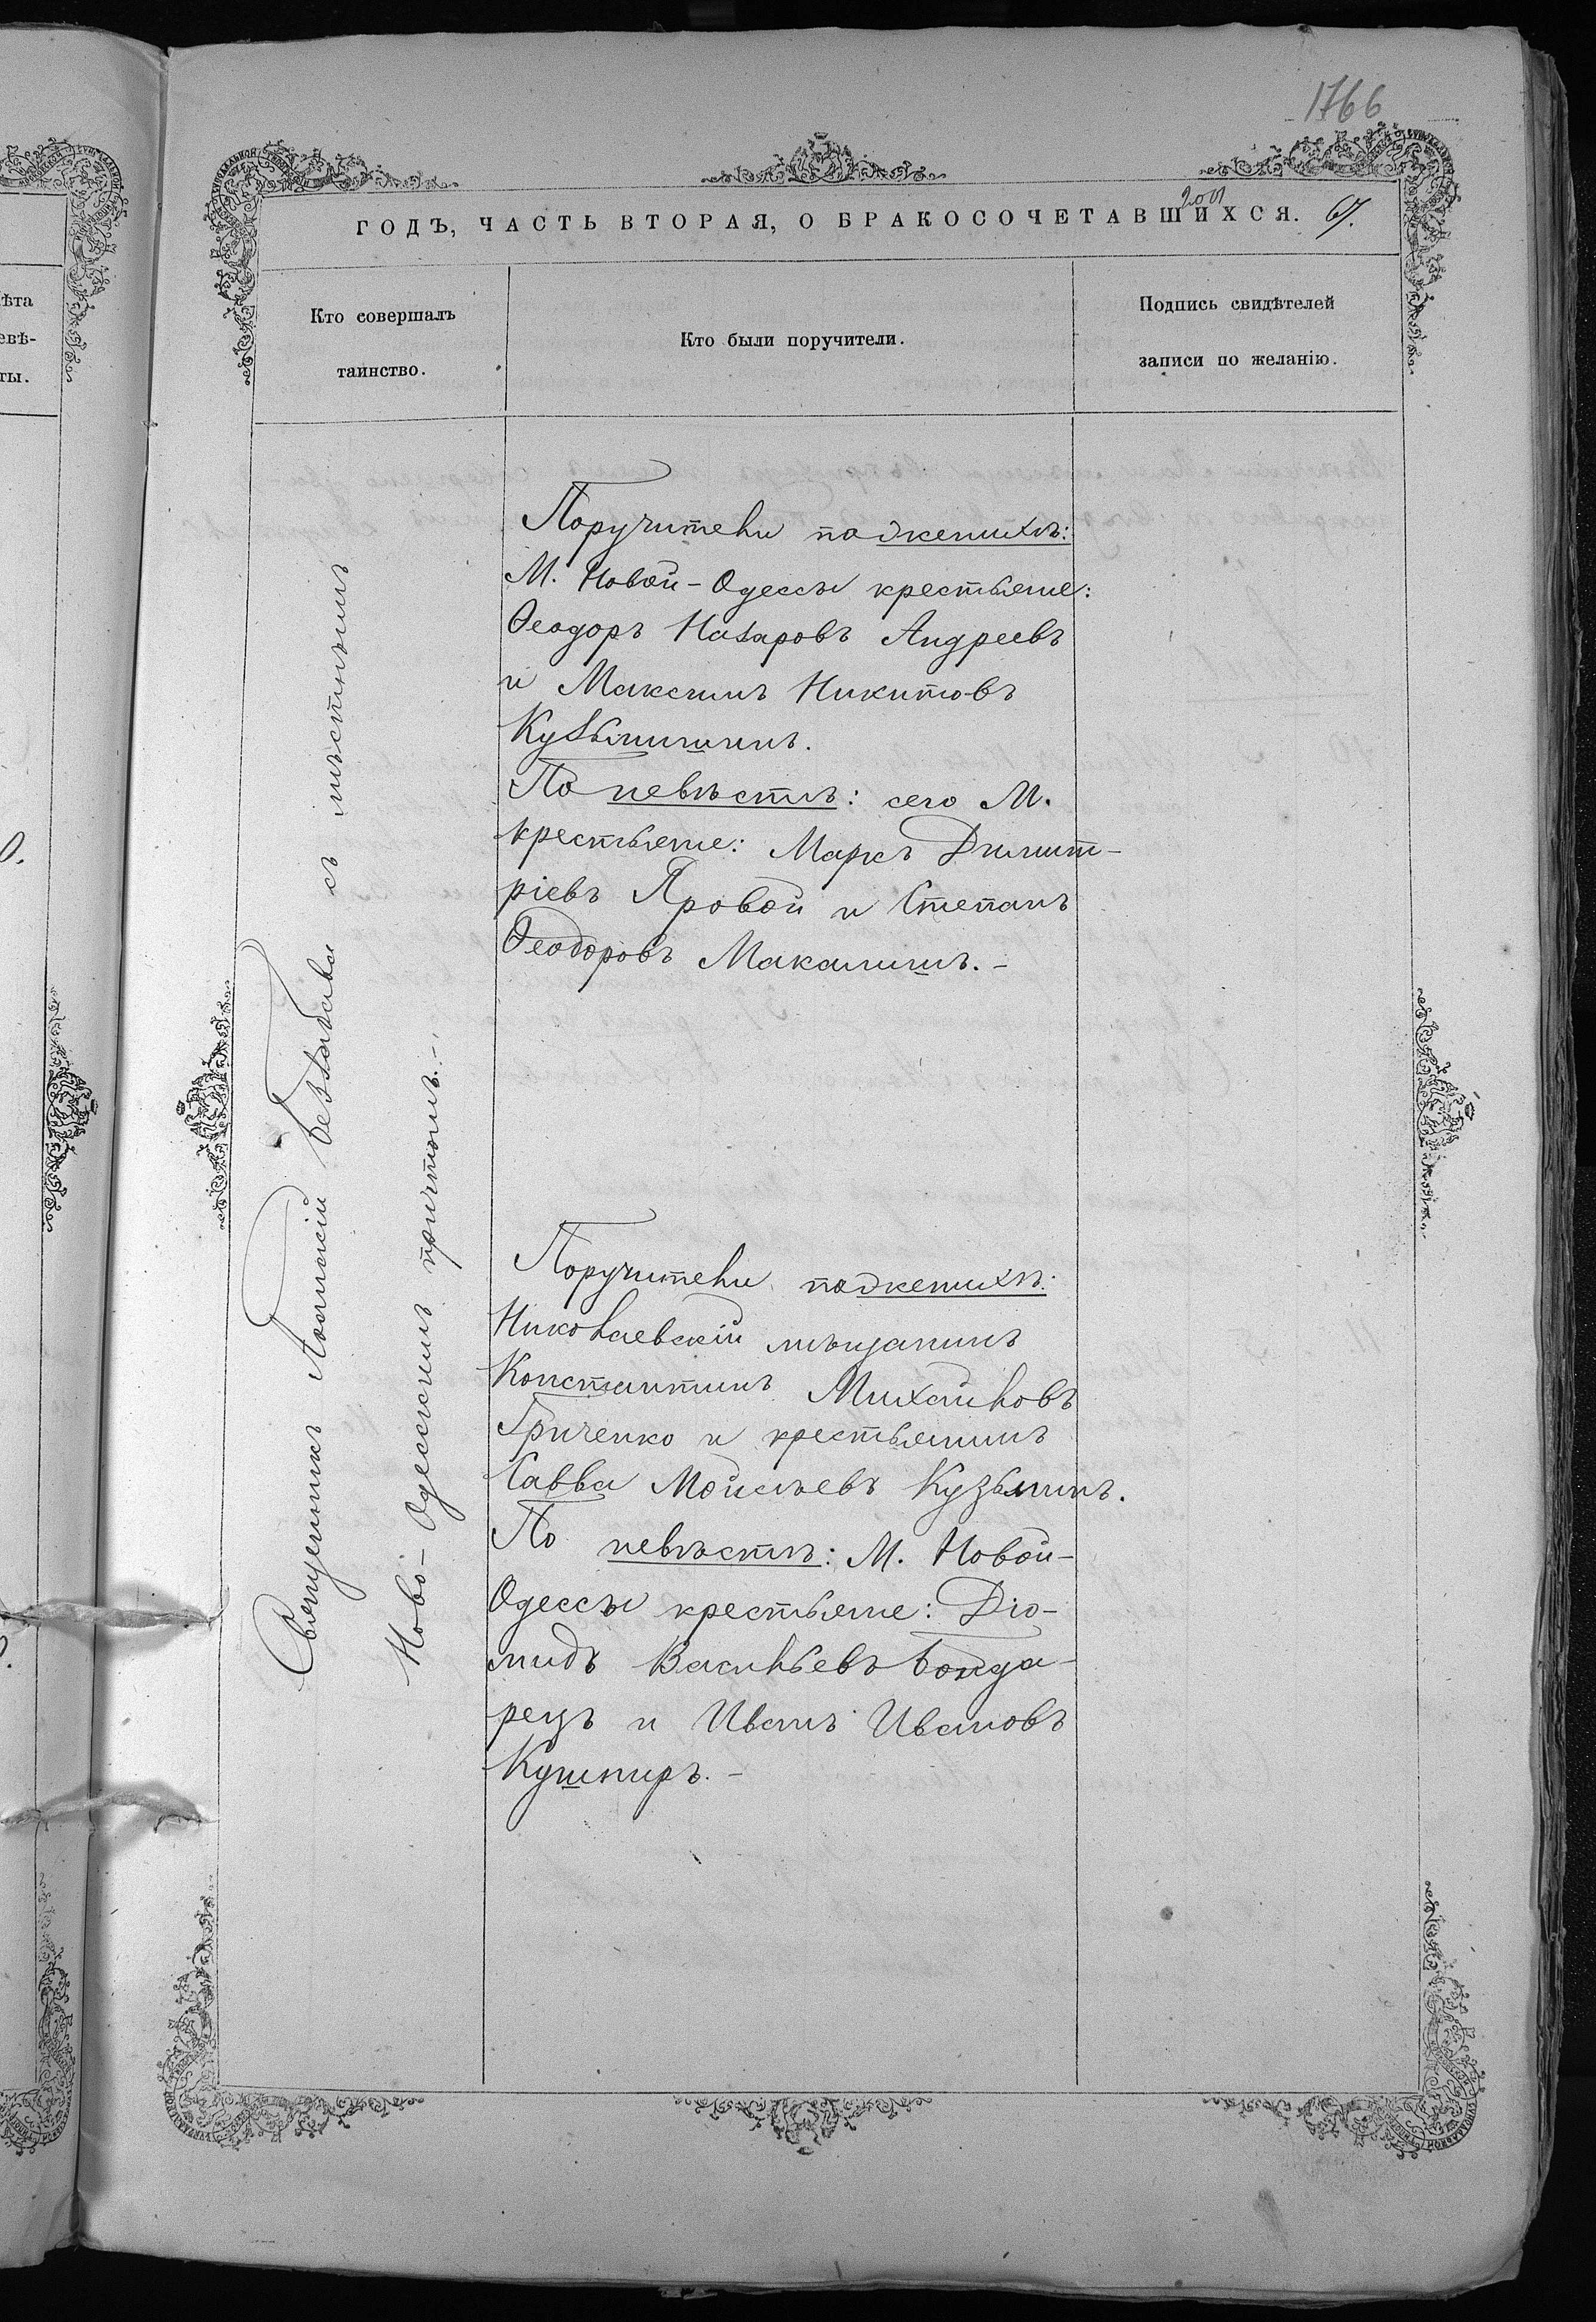 1766
200
ГОДЪ, ЧАСТЬ ВТОРАЯ, О БРАКОСОЧЕТАВШИХСЯ. 67.
Кто совершалъ
таинство.
Кто были поручители.
Подпись свидѣтелей
записи по желанію.
Священникъ Іоанникій Беззабава съ мѣстнымъ
Ново-Одесскимъ причтомъ.-
Поручители по женихѣ:
М. Новой-Одессы крестьяне:
Ѳеодоръ Назаровъ Андреевъ
и Максимъ Никитовъ
Кузьмишинъ.
По невѣстѣ: сего М.
крестьяне: Маркъ Димит-
ріевъ Яровой и Степанъ
Ѳеодоровъ Макашинъ.-
Поручители по женихѣ:
Николаевскій мѣщанинъ
Константинъ Михайловъ
Гриченко и крестьянинъ
Савва Мойсѣевъ Кузьминъ.
По невѣстѣ: М. Новой-
Одессы крестьяне: Діо-
мидъ Васильевъ Бонда-
рецъ и Иванъ Ивановъ
Кушниръ.-
ѣта
евѣ-
ты.